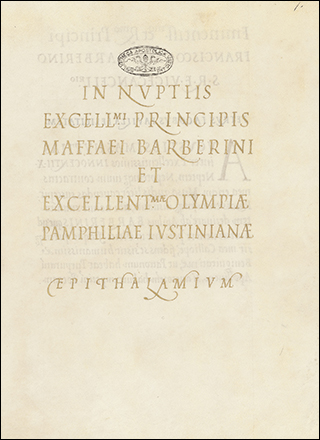 IN NVPTIIS
EXCELLMI PRINCIPIS
MAFFAEI BARBERINI
ET
EXCELLENTMÆ OLYMPIÆ
PAMPHILIAE IVSTINIANÆ
EPITHALAMIVM